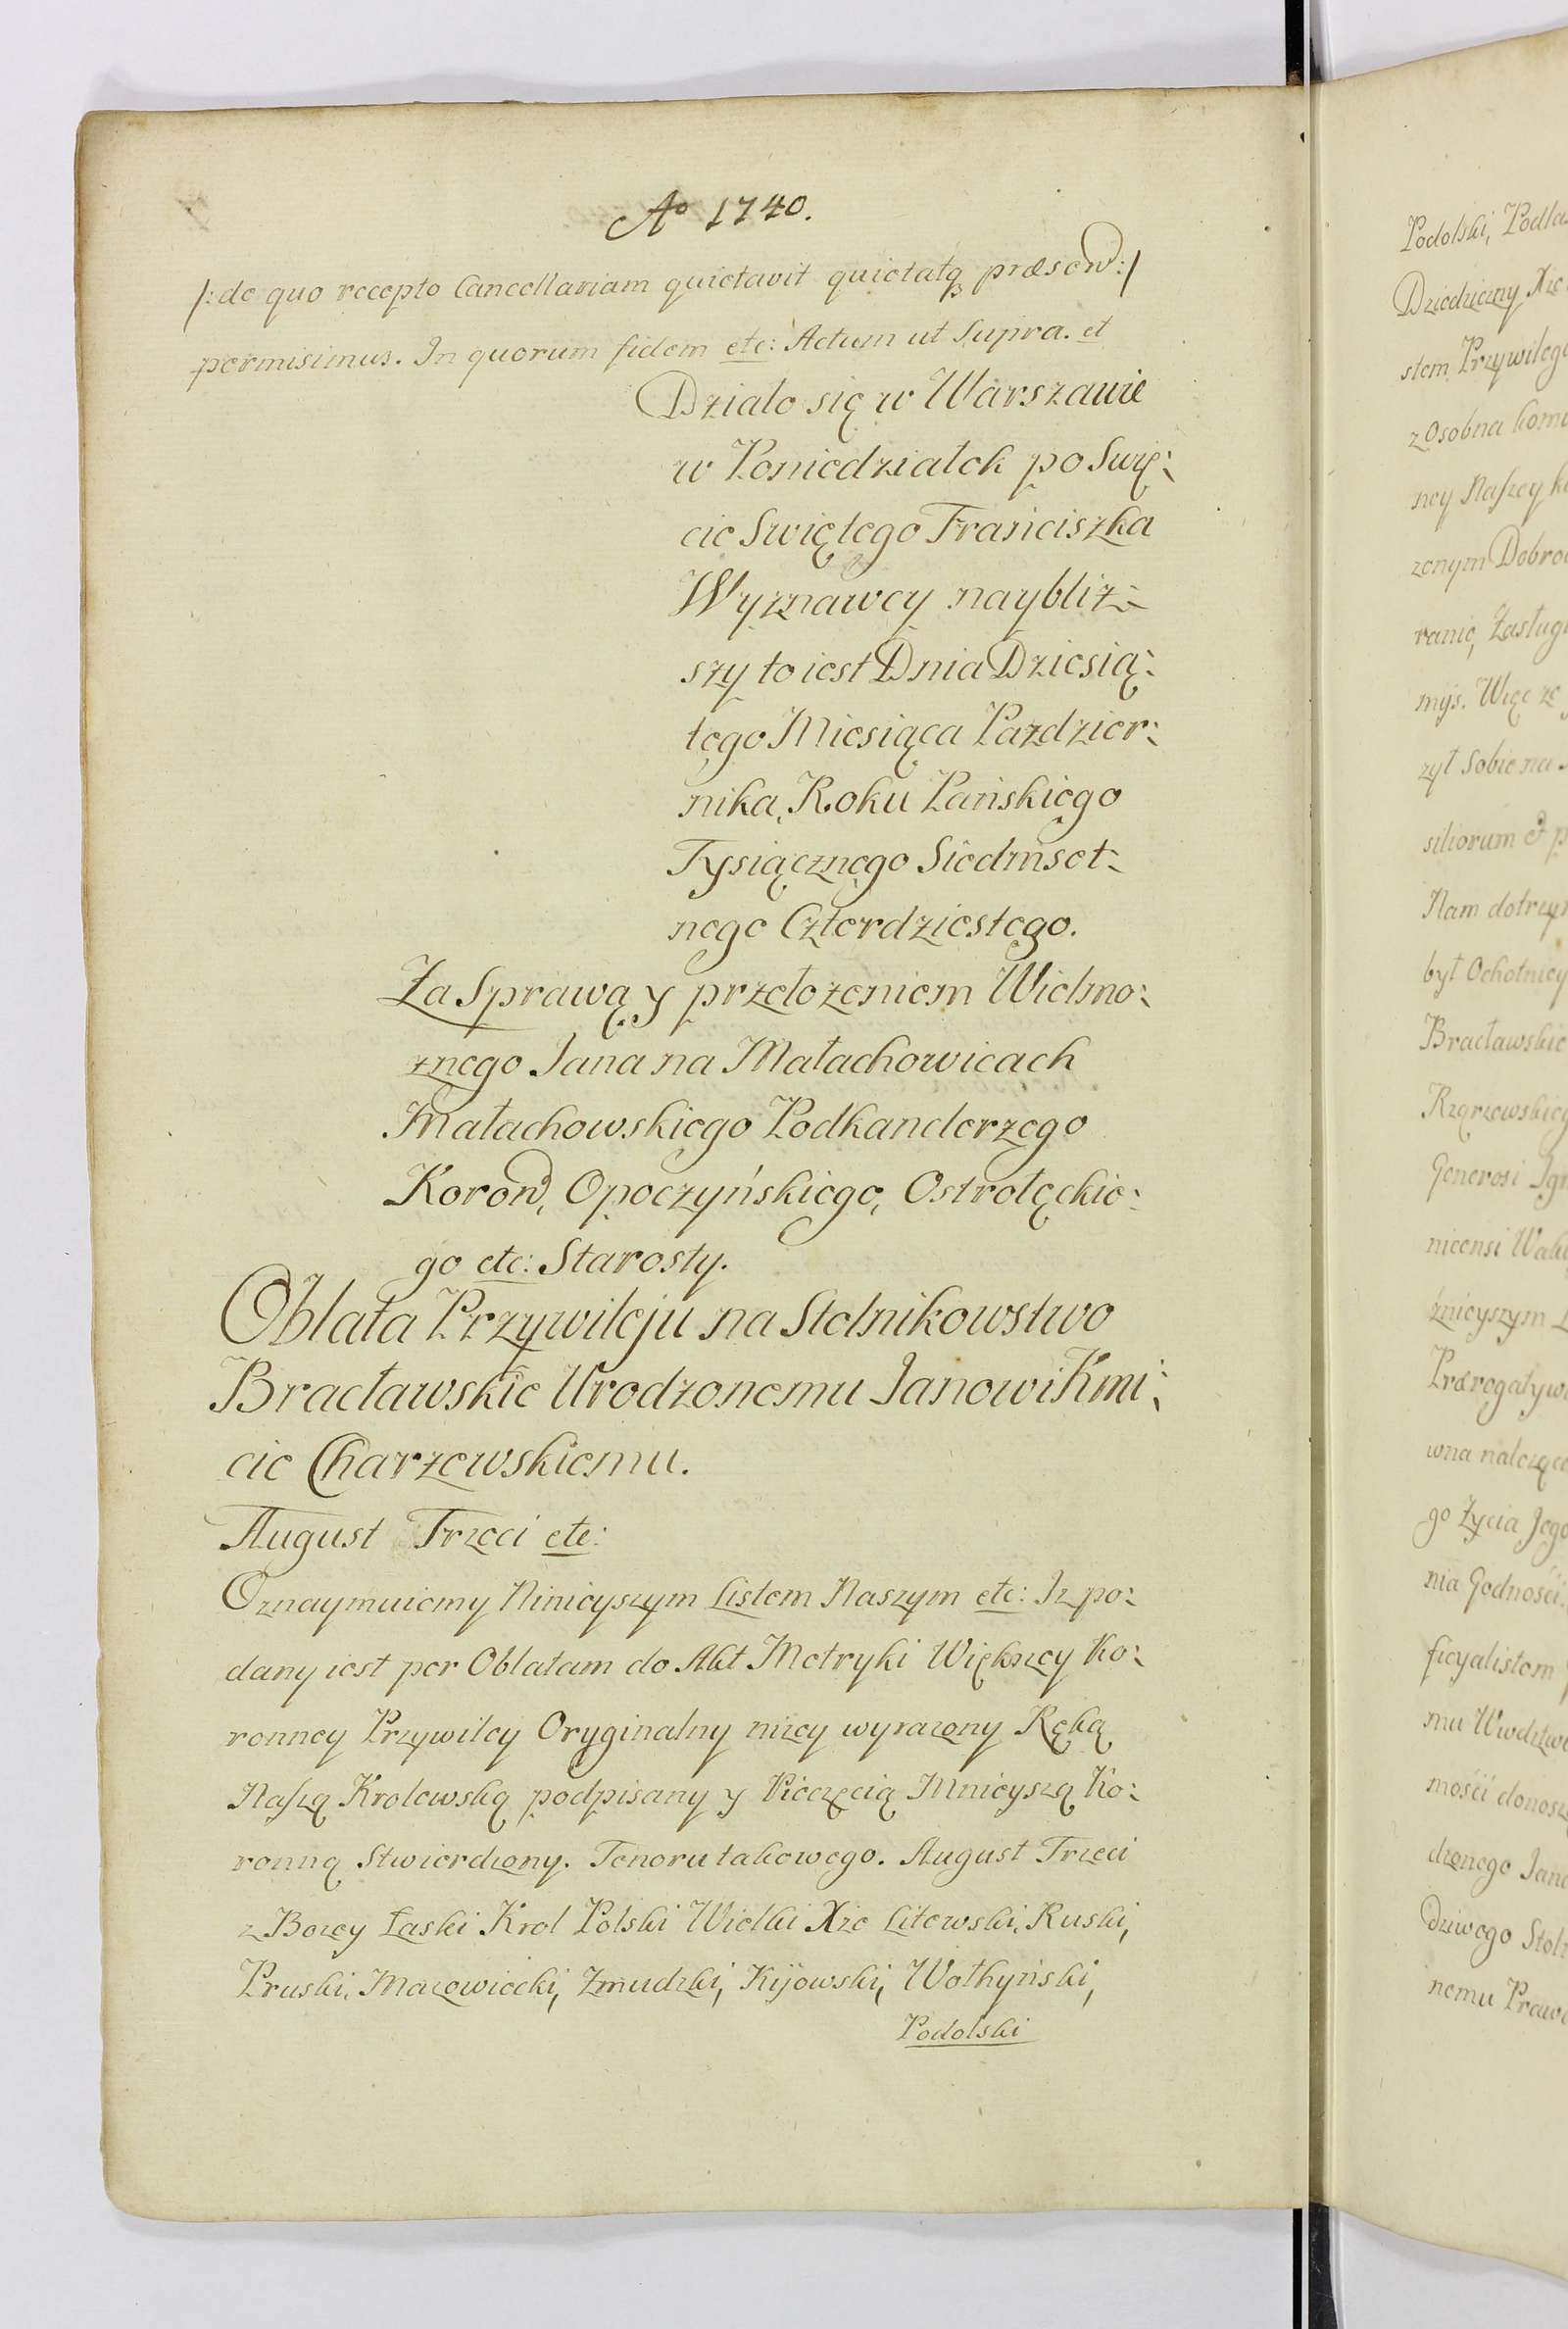 Ao 1740.
/: de quo recepto Cancellariam quietavit quietatq præsend :/
permisimus. In quorum fidem etc: Actum ut Supra. et
Działo się w Warszawie
w Poniedziałek po Swię:
cie Swiętego Franciszka
Wyznawcy naybliż:
szy to iest Dnia Dziesią:
tego Miesiąca Pazdzier:
nika, Roku Pańskiego
Tysiącznego Siedmset:
nego Czterdziestego.
Za Sprawą y przełozeniem Wielmo:
znego Jana na Małachowicach
Małachowskiego Podkanclerzego
Koron, Opoczyńskiego, Ostrołęckie:
go etc: Starosty.
Oblata Przywileju na Stolnikowstwo
Bracławskie Urodzonemu Janowi Kmi:
cie Charzewskiemu.
August Trzeci etc:
Oznaymuiemy Ninieyszym Listem Naszym etc: Iz po:
dany iest per Oblatam do Akt Metryki Większey Ko:
ronney Przywiley Oryginalny nizey wyrazony Ręką
Naszą Krolewską podpisany y Pieczęcią Mnieyszą Ko:
ronną Stwierdzony. Tenoru takowego. August Trzeci
z Bozey Łaski Krol Polski Wielki Xze Litewski, Ruski,
Pruski, Mazowiecki, Zmudzki, Kijowski, Wołhyński,
Podolski
Podolski, Podla
Dziedziczny Xze
stem Przywileg
z Osobna kom
ney Naszey k
zonym Dobro
ranie, Zasług
myś. Więc ze
zył Sobie na
siliorum & p
Nam dotrzy
był Ochotnicy
Bracławskie
Rzqrzewskieg
Generosi Ign
nicensi Wak
źnieyszym
Prærogatyw
wna należące
go Życia Jego
nia Godności
ficyalistom
mu Uwdztwa
mości donosz
dzonego Jan
Dziwego Stol
nemu Praw